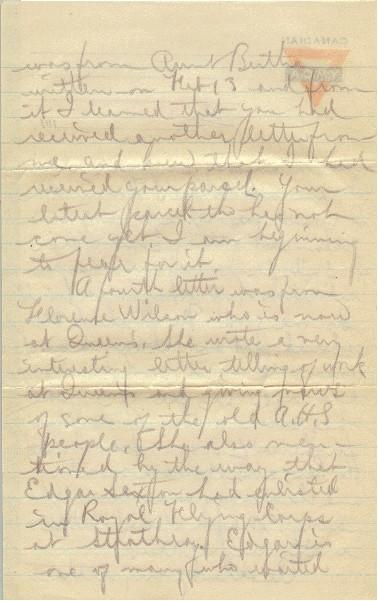 was from Aunt Bertha
written on Feb 13 and from
it I learned that you had
received another letter from
me and knew that I had
received your parcel. Your
latest parcel tho has not
come yet I am beginning
to fear for it.
A fourth letter was from
Florence Wilson who is now
at Queens. She wrote a very
interesting letter telling of work
at Queens and giving
of some of the old A.H.S
people. She also men-
tioned by the way that
Edgar Sexton had enlisted
in Royal Flying Corps
at Edgar is
one of many who waited
CANADIAN